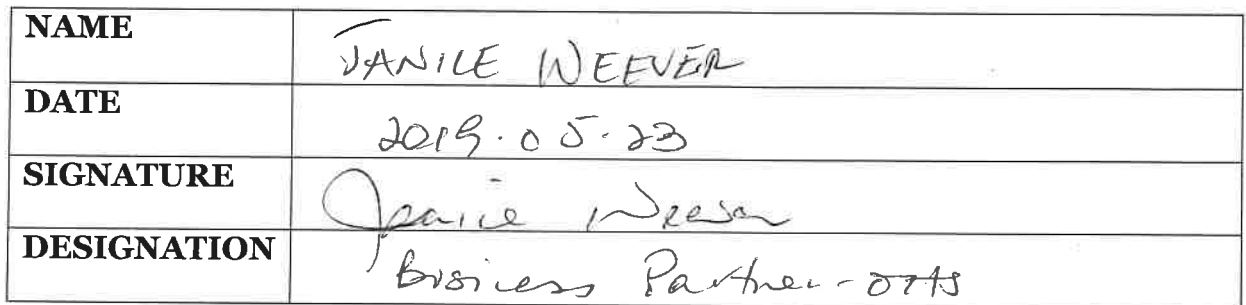 NAME JANICE WEEVER
DATE 2019.05.23
SIGNATURE Janice Weever
DESIGNATION Business Partner-